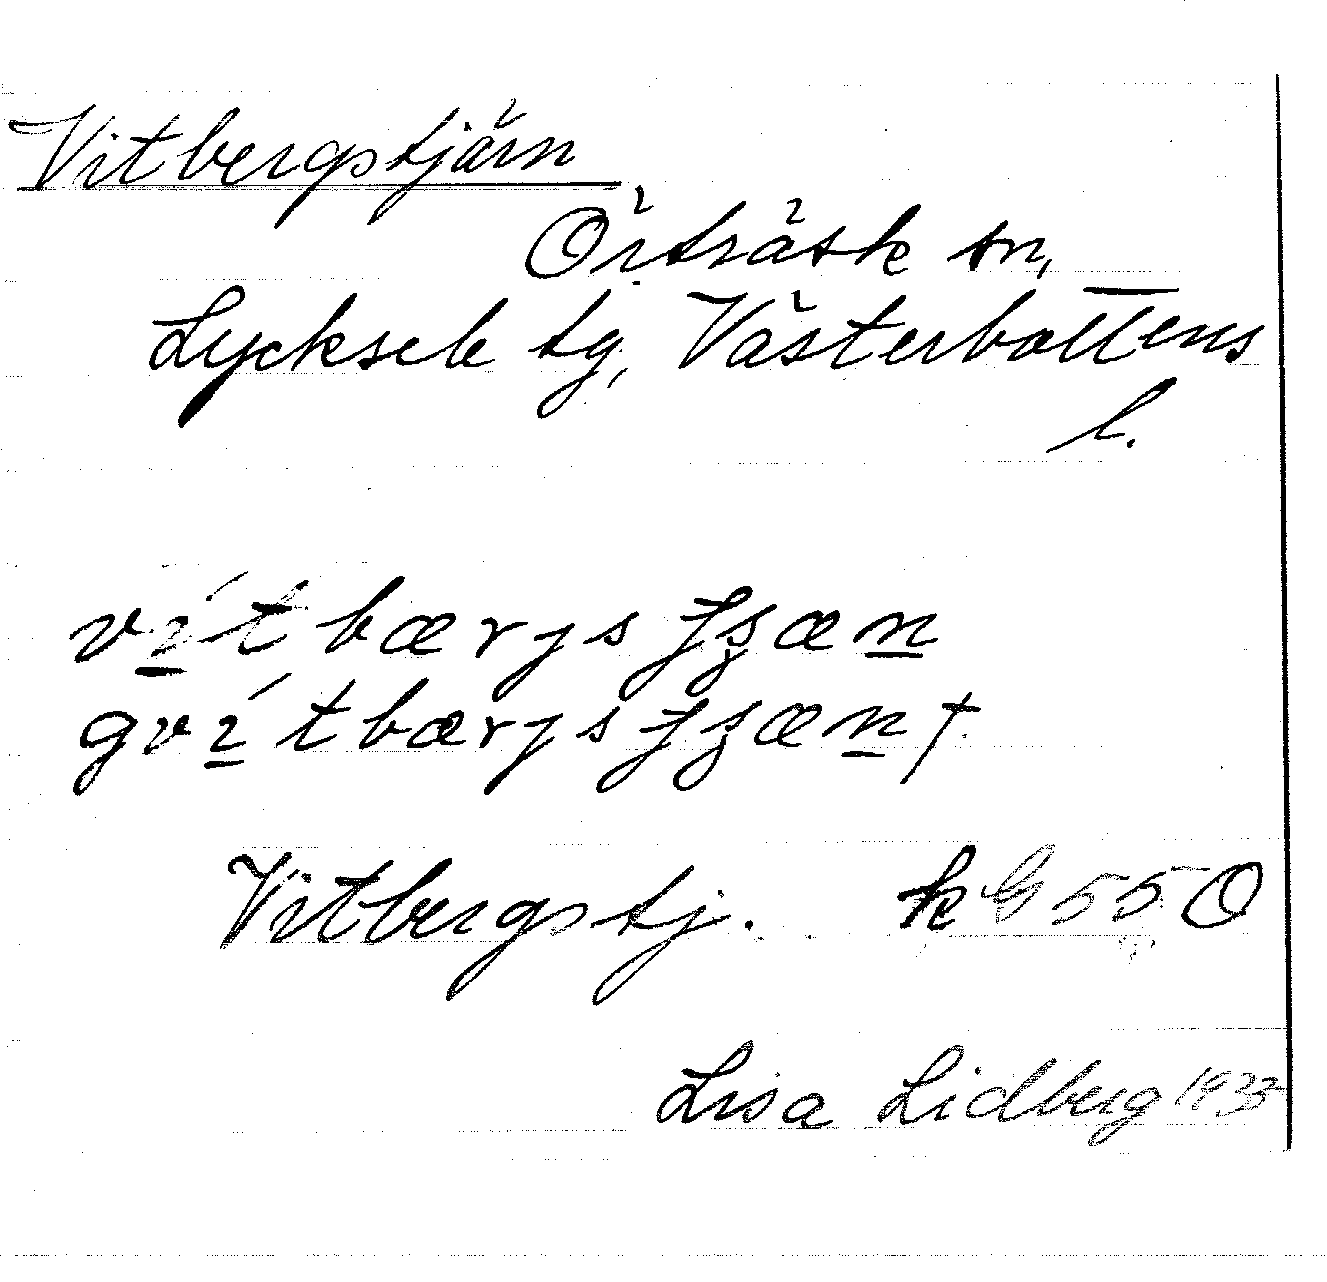 Vitbergstjärn
Örträsk sn,
Lycksele tg, Västerbottens
l.
vítbærjsʃʂæn
gvítbærjsʃʂæn†
Vitbergstj. kG 55 O
Lisa Lidberg 1933